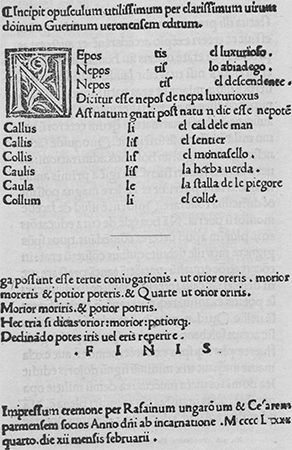 ¶Incipit opusculum utilissimum per clarissimum uirum
dominum Guerinum ueronensem editum.
NEpos tis el luxurioso.
Neppos tis lo abiadego.
Nepos tis el descendente.
Dicitur esse nepos de nepa luxuriosus
Ast natum gnati post natum dic esse nepotem
Callus li el cal de le man
Callis lis el sentier
Collis lis el montasello.
Caulis lis la herba uerda.
Caula le la stalla de le piegore
Collum li el collo.
ga possunt esse tertie coniugationis. ut orior oreris. morior
moreris & potior poteris. & Quarte ut orior oriris.
Morior moriris. & potior potiris.
Hec tria si dicas orior: morior: potiorq;
Declinando potes iris uel eris reperire.
F I N I S.
Impressum cremone per Rafainum ungaroum & Cesarem
parmensem socios Anno dñi ab incarnatione .M cccc Lxxxx
quarto. die xii mensis februarii.